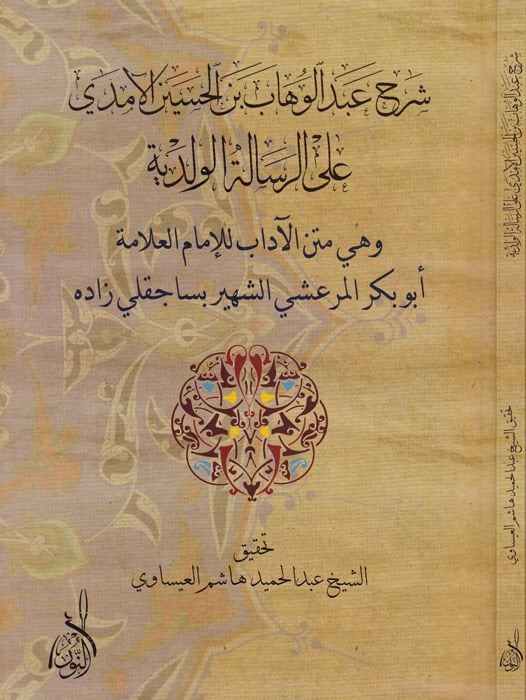 شرح عبد الوهاب بن الحسين الآمدي
على الرسالة الولدية
وهي متن الآداب للإمام العلامة
أبو بكر المرعشي الشهير بساجقلي زاده
تحقيق
الشيخ عبد الحميد هاشم العيساوي
النور
شرح عبد الوهاب بن الحسين الآمدي على الرسالة الولدية
تحقيق الشيخ عبد الحميد هاشم العيساوي
النور